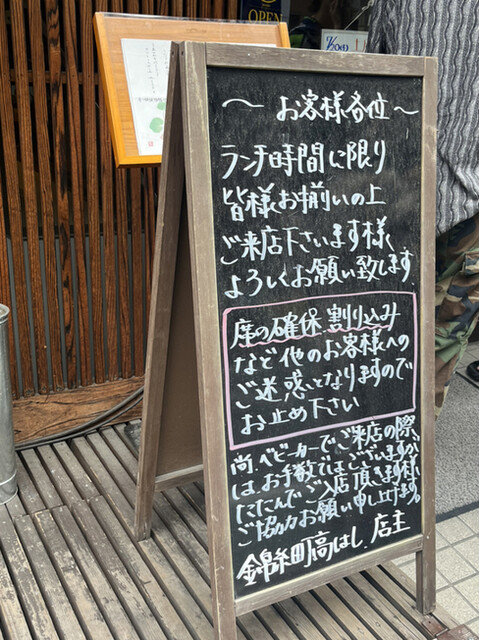 OPEN
7/20(日)
〜お客様各位〜
ランチ時間に限り
皆様お揃いの上
ご来店下さいます様、
よろしくお願い致します
席の確保、割り込み
など他のお客様への
ご迷惑となりますので
お止め下さい
尚、ベビーカーでご来店の際、
は、お手数ではございますが
たたんでご入店頂きます様
ご協力お願い申し上げます。
錦糸町高はし、店主